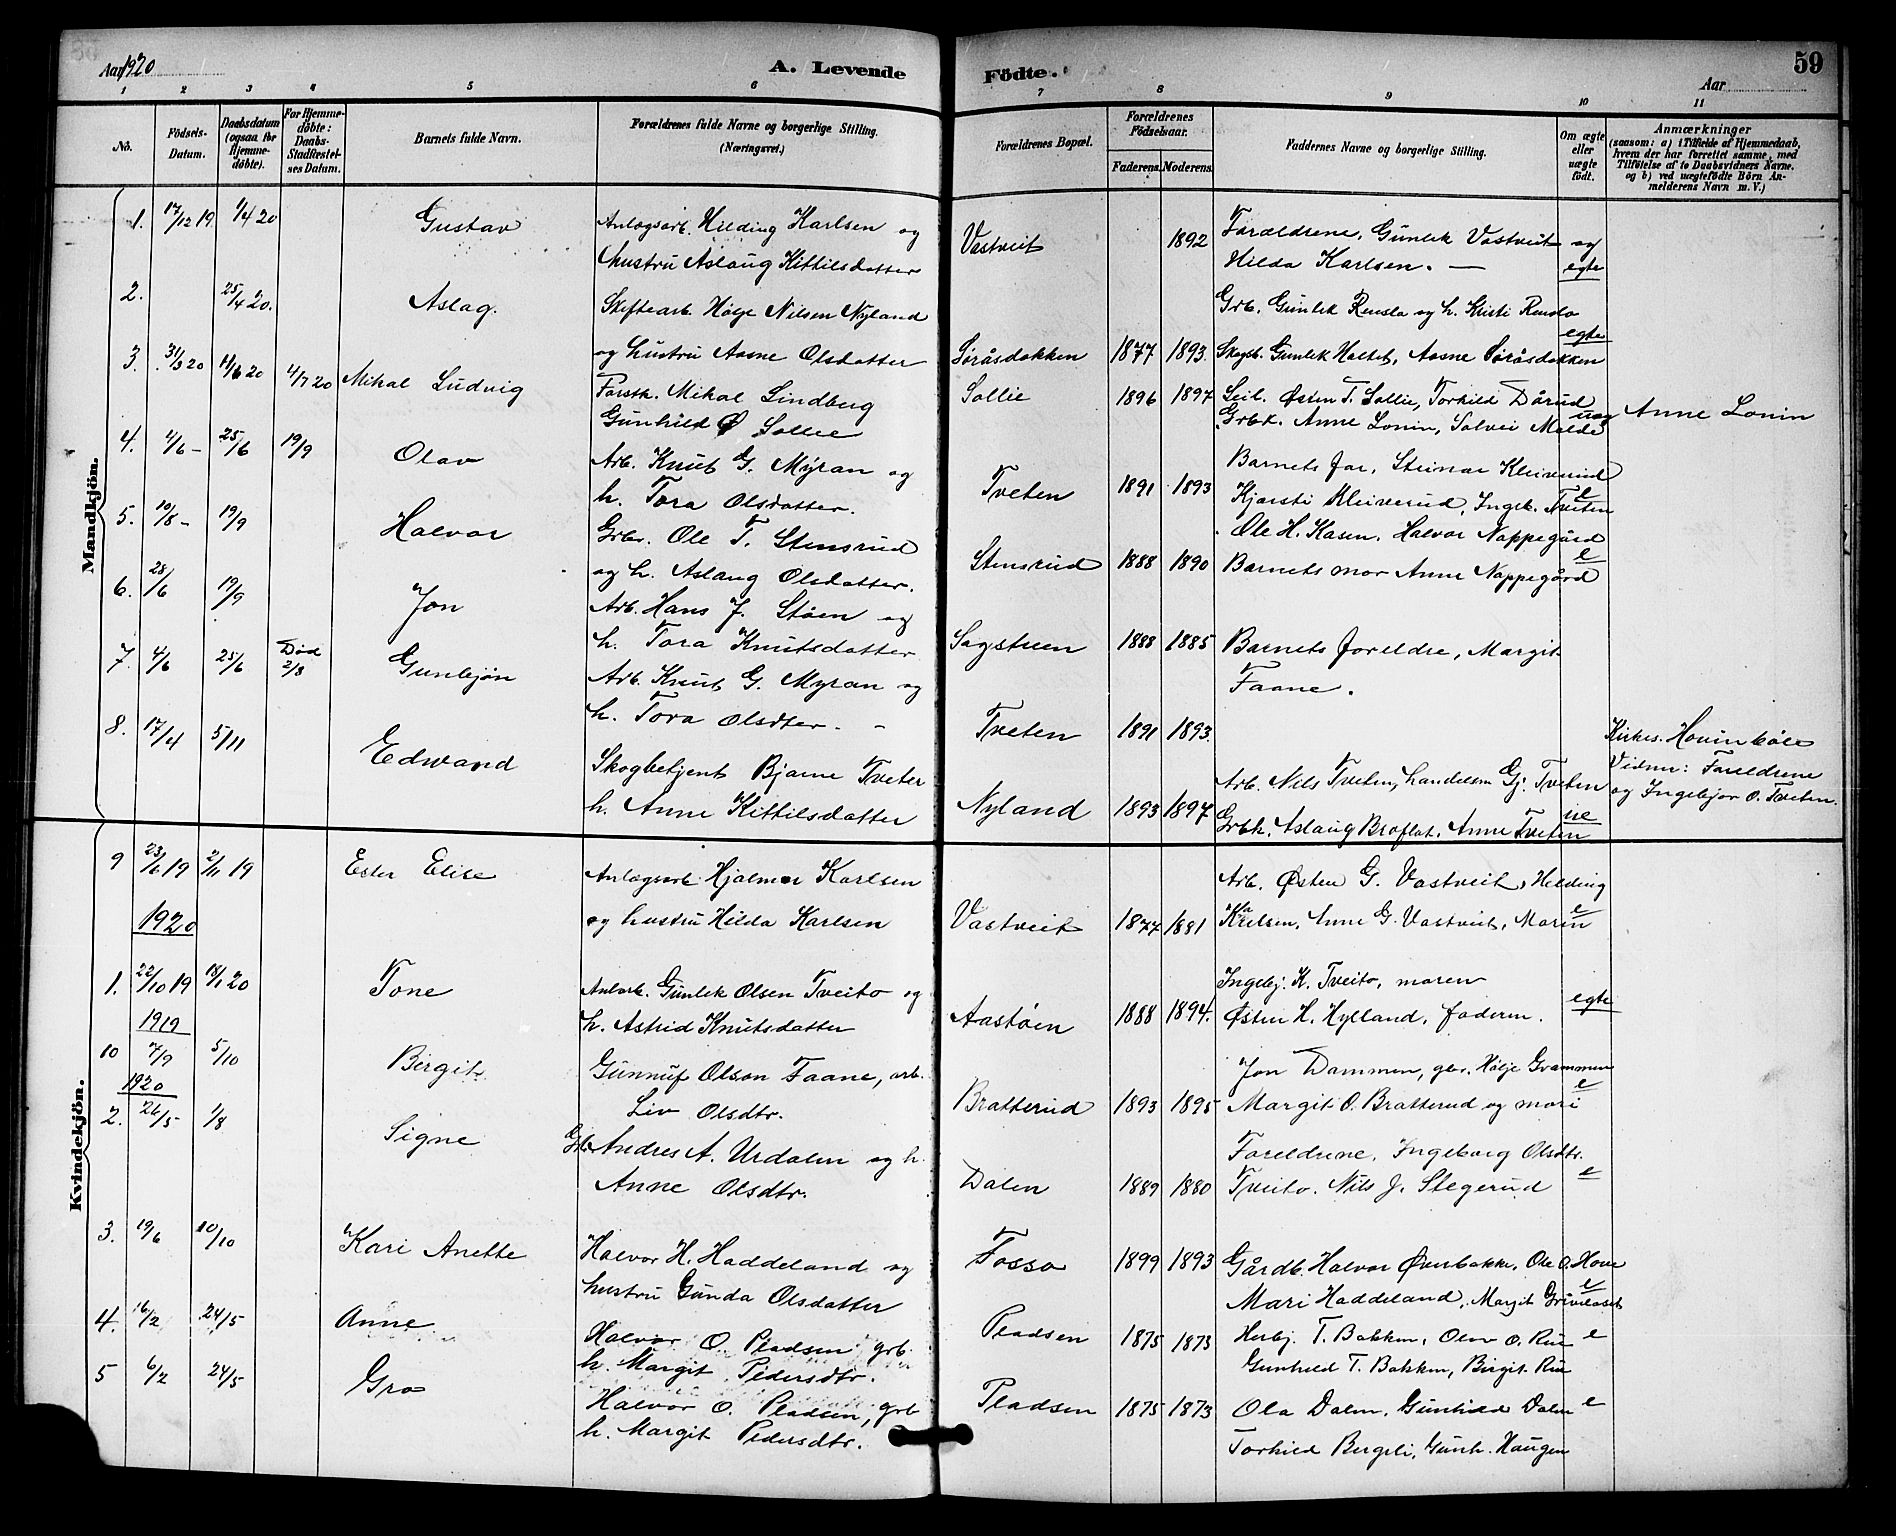 Aar 1920
A. Levende
Födte.
59
Aar
1 2 3 4 5 6 7 8 9 10 11
No.
Födsels-Datum.
Daabsdatum (ogsaa for Hjemme-döbte).
For Hjemme-döbte: Daabs-Stadfæstel-ses Datum.
Barnets fulde Navn.
Forældrenes fulde Navne og borgerlige Stilling.
(Næringsvei.)
Forældrenes Bopæl.
Forældrenes Födselsaar.
Faderens. Moderens.
Faddernes Navne og borgerlige Stilling.
Om ægte eller uægte födt.
Anmærkninger
(saasom: a) i Tilfælde af Hjemmedaab,
hvem der har forrettet samme, med
Tilföielse af to Daabsvidners Navne.
og b) ved uægtefödte Börn An-
melderens Navn m. V.)
Mandkjön.
1. 17/12 19. 1/4 20 Gustav Anlægsarb. Hilding Karlsen og
hustru Aslaug Kittilsdatter
Vastveit 1892 Forældrene, Gunlek Vastveit og
Hilda Karlsen. — egte
2. 25/4 20. Aslag. Skiftearb. Hölje Nilsen Nyland
og hustru Aasne Olsdatter
Söråsdokken 1877 1893. Grb. Gunlek Rensla og h. Kristi Rensla
egte
Skogb. Gunlek Holtet, Aasne Söråsdokken
3. 31/3 20 11/6 20 4/7 20 Mikal Ludvig Forstk. Mikal Lindberg
Gunhild Ø Sollie
Sollie 1896 1897 Seil. Østen T. Sollie, Torkild Dårud
Grbk. Anne Lonin, Solvei Molde uæg Anne Lonin
4. 4/6 – 25/6 19/9 Olav Arb. Knut G. Myran og
h. Tora Olsdatter.
Tveten 1891 1893 Barnets far, Steinar Kleiverud
Kjersti Kleiverud, Ingeb. Tveten e
5. 10/8 – 19/9 Halvor Grbr. Ole T. Stensrud
og h. Aslaug Olsdatter.
Stensrud 1888 1890 Ole H. Kasen, Halvor Nappegård
Barnets mor Anne Nappegård e
6. 28/6 19/9 Jon Arb. Hans J. Stöen og
h. Tora Knutsdatter
Sagstuen 1888 1885 Barnets foreldre, Margit
Faane.
7. 4/6 25/6 Död 2/8 Gunbjön Arb. Knut G. Myran og
h. Tora Olsdter. –
Tveten 1891 1893.
8. 17/4 5/11 Edvard Skogbetjent Bjarne Tveter
h. Anne Kittilsdatter
Nyland 1893 1897 Arb. Nils Tveten, handelsm Gj. Tveten
Grbk. Aslaug Broflat, Anne Tveten
Kirkes. Hovinbøle
Vidner: Foreldrene
og Ingebjor O. Tveten.
Kvindekjön.
9 23/6 19 2/11 19 Ester Elise Anlægsarb. Hjalmar Karlsen
og hustru Hilda Karlsen
Vastveit 1877 1881 Arb. Østen G. Vastveit, Hilding
Karlsen, Anne G. Vastveit, Moren e
1920
1. 22/10 19 18/1 20 Tone Anlarb. Gunlek Olsen Tveito og
h. Astrid Knutsdatter
Aastöin 1888 1894. Ingebj. K. Tveito, moren
Østen H. Hylland, faderen. egte
1919
10 7/9 5/10 Birgit. Gunnuf Olson Faane, arb.
Liv Olsdtr.
Bratterud 1893 1895 Jon Dammen, gbr. Hölje Grammen
Margit O. Bratterud og mori e
1920
2. 26/5 1/8 Signe Grb. Andres A. Urdalen og h.
Anne Olsdtr.
Dalen 1889 1880 Foreldrene, Ingeborg Olsdtr.
Tveito. Nils J. Stegerud e
3. 19/6 10/10 Kari Anette Halvor H. Haddeland og
hustru Gunda Olsdatter
Fosso 1899 1893 Gårdb. Halvor Överbakke, Ole O. Hove
Mari Haddeland, Margit e
4. 16/2 24/5 Anne Halvor O. Pladsen, grb.
h. Margit Pedersdtr.
Pladsen 1875 1873 Herbj. T. Bakken, Olav O. Rui e
Gunhild T. Bakken, Birgit Rui
5 6/2 24/5 Gro Halvor O. Pladsen, grb
h. Margit Pedersdtr.
Pladsen 1875 1873 Ola Dalen, Gunhild Dalen e
Torkild Bergeli, Gunh. Haugen